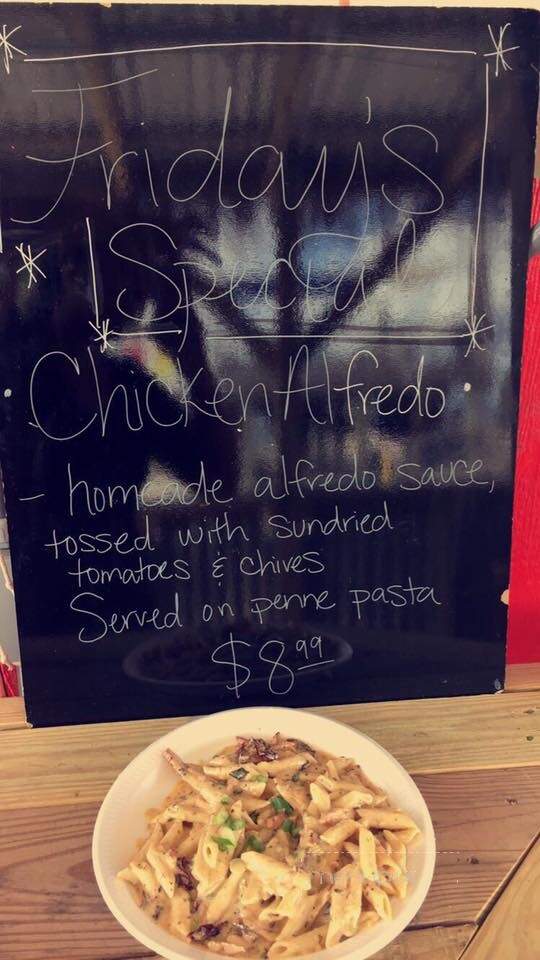 Friday's
Special
Chicken Alfredo
- homeade alfredo sauce,
tossed with sundried
tomatoes & chives
Served on penne pasta
$8.99